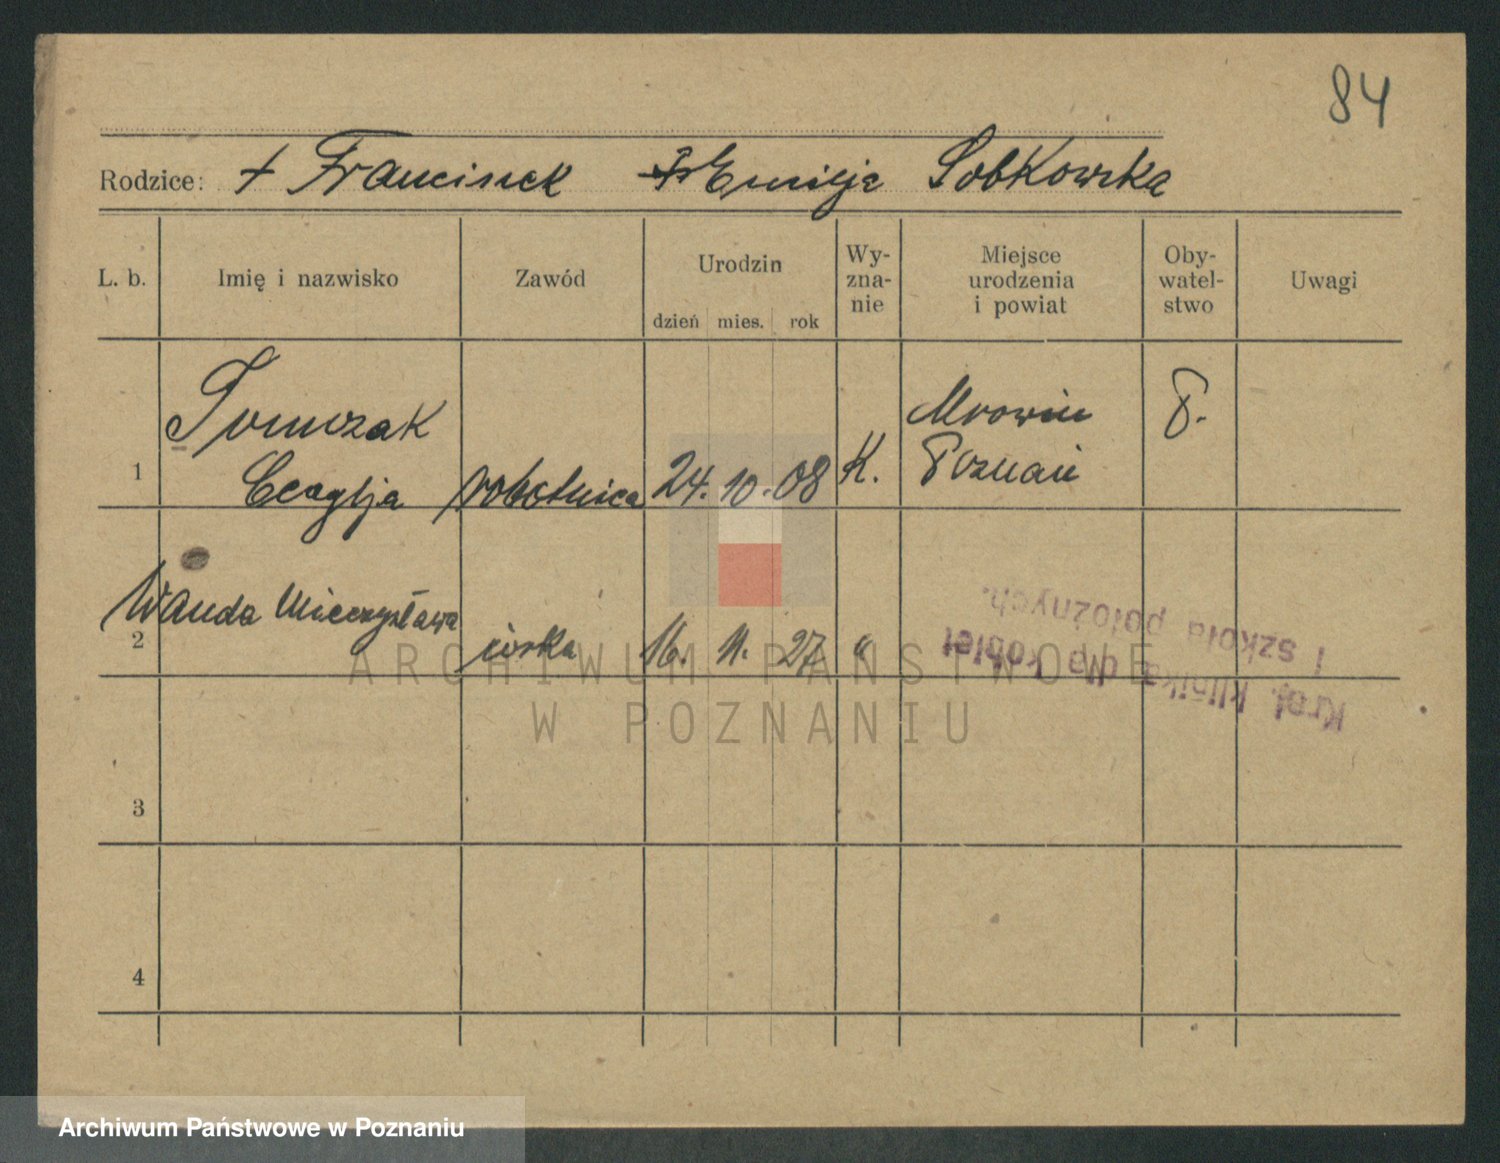 84
Rodzice: + Franciszek + Emilja Sobkowska
L. b. Imię i nazwisko Zawód Urodzin dzień mies. rok Wy-zna-nie Miejsce urodzenia i powiat Oby-watel-stwo Uwagi
Tomczak Mrowin P.
1 robotnica 24. 10. 08 K. Poznań
Wanda Mieczysława
2 córka 16. 11. 27 "
Kraj. klinika dla kobiet
i szkoła położnych.
3
4
ARCHIWUM PAŃSTWOWE
W POZNANIU
Archiwum Państwowe w Poznaniu